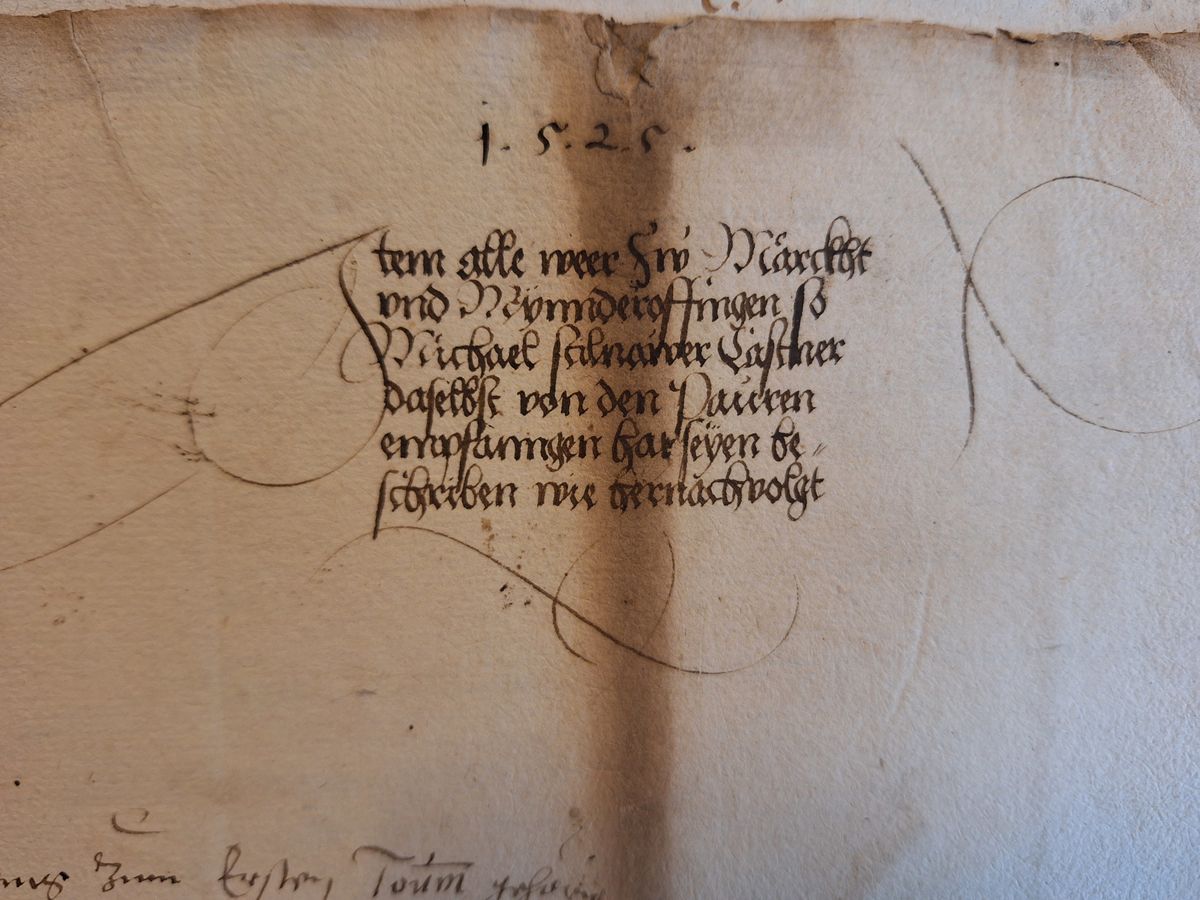 1.5.2.5.
Item alle weer Zw Märckht
vnd Mynnderoffingen so
Michael Castner
daselbst von den Pauren
empfanngen hat seyen be-
schriben wie hernachvolgt
zum Ersten